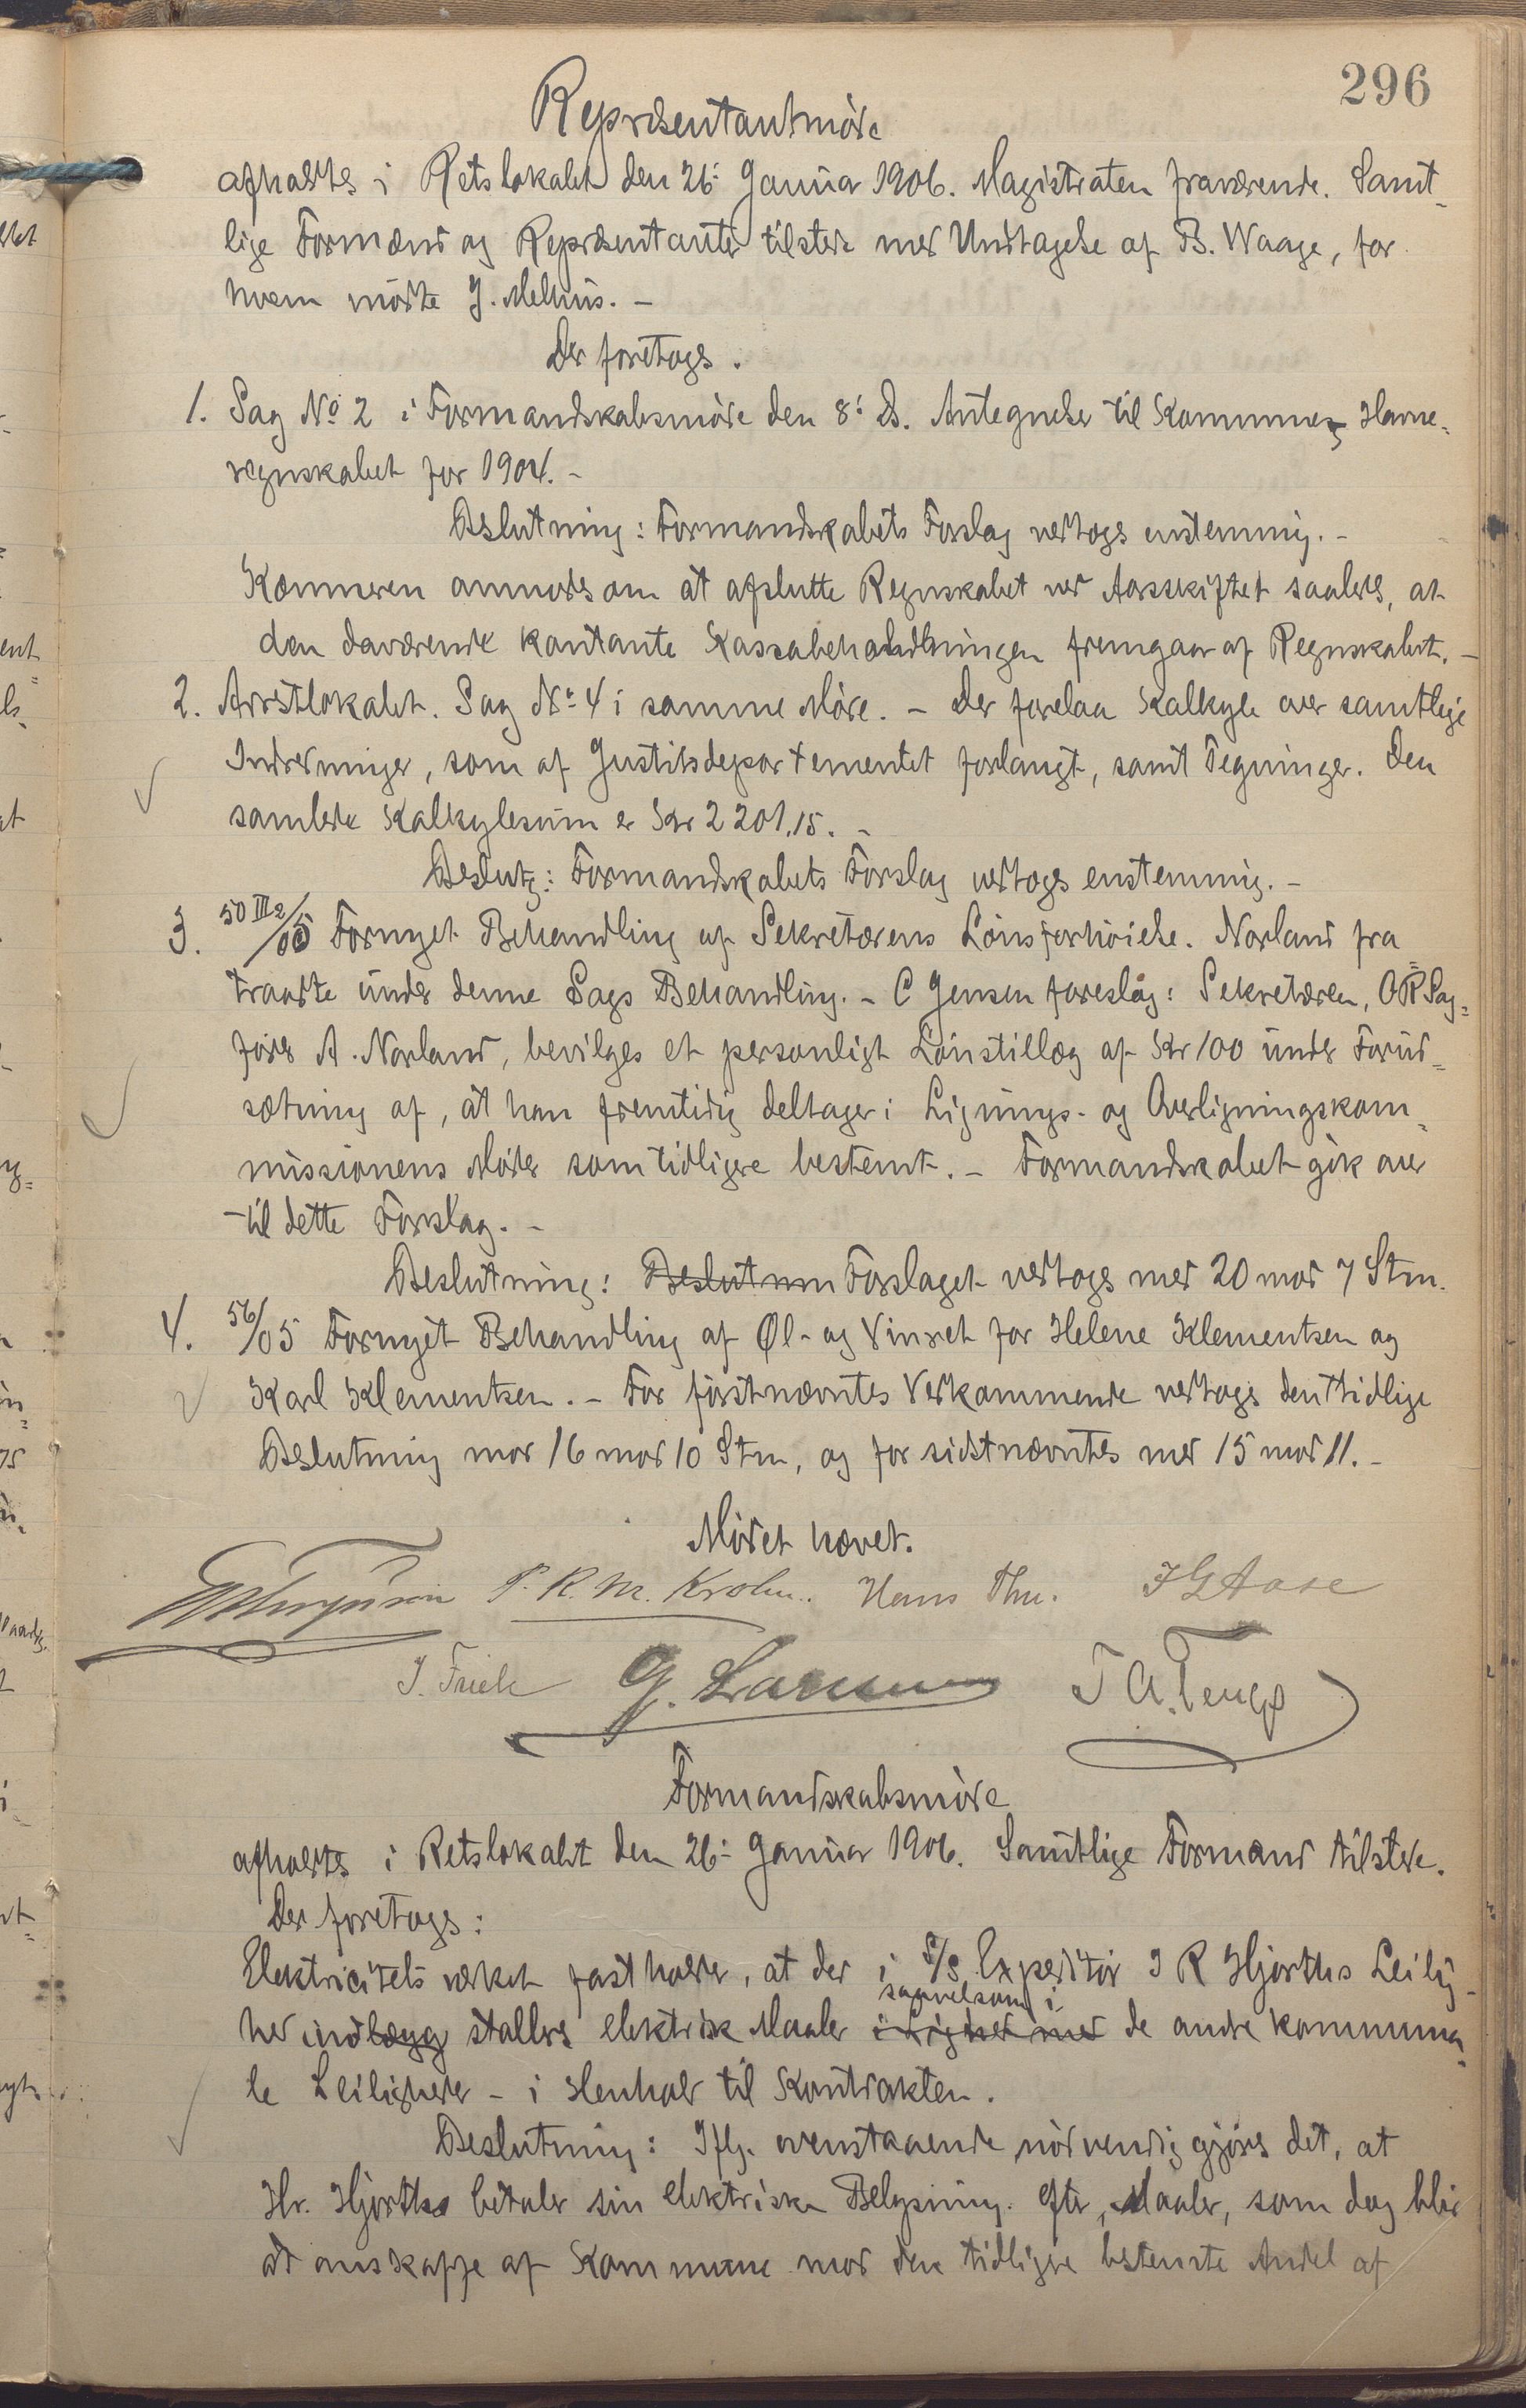 296
Repræsentantmøde
afholdtes i Retslokalet den 26: Januar 1906. Magistraten fraværende. Samt-
lige Formænd og Repræsentanter tilstede med Undtagelse af B. Waage, for
hvem mødte J. Melhus. -
Der foretoges.
1. Sag No 2 i Formandskabsmøde den 8: ds. Antegnelser til Kommunens Havne-
regnskabet for 1904. -
Beslutning: Formandskabets Forslag vedtoges enstemmig. -
Kæmneren anmodes om at afslutte Regnskabet ved Aarsskiftet saaledes, at
den daværende kontante Kassabeholdningen fremgaar af Regnskabet. -
2. Arrestlokalet. Sag No 4 i samme Møde. - Der forelaa Kalkyle over samtlige
Indredninger, som af Justitsdepartementet forlangt, samt Tegninger. Den
samlede Kalkylesum er Kr 2 201.15. -
Beslutg: Formandskabets Forslag vedtoges enstemmig. -
3. 50 III 2/05 Fornyet Behandling af Sekretærens Lønsforhøielse. Norland fra-
traadte under denne Sags Behandling. - C Jensen foreslog: Sekretæren, OR Sag-
fører A. Norland, bevilges et personligt Lønstillæg af Kr 100 under Forud-
sætning af, at han fremtidig deltager i Lignings- og Overligningskom-
missionens Møder som tidligere bestemt. - Formandskabet gik over
til dette Forslag. -
Beslutning: Beslutnin Forslaget vedtoges med 20 mod 7 Stm.
4. 56/05 Fornyet Behandling af Øl- og Vinret for Helene Klementsen og
Karl Klementsen. - For førstnævntes Vedkommende vedtoges den tidlige
Beslutning mod 16 mod 10 Stm, og for sidstnævntes med 15 mod 11. -
Mødet hævet.
P. R. M. Krohn. Hans Thu. J G Aase
J. Friele G. Larsen T A. Tengs
Formandskabsmøde
afholdtes i Retslokalet den 26: Januar 1906. Samtlige Formænd tilstede.
Der foretoges:
Elektricitetsværket fastholder, at der i S/S Expeditør J R Hjorths Leilig-
saavelsom i
hed indlægg stalleres elektrisk Maaler i Lighed med de andre kommuna-
le Leiligheder - i Henhold til Kontrakten.
Beslutning: Iflg. ovenstaaende nødvendig gjøres det, at
Hr. Hjorths betaler sin elektriske Belysning efter Maaler, som dog blir
at anskaffe af Kommune mod den tidligere bestemte Andel af